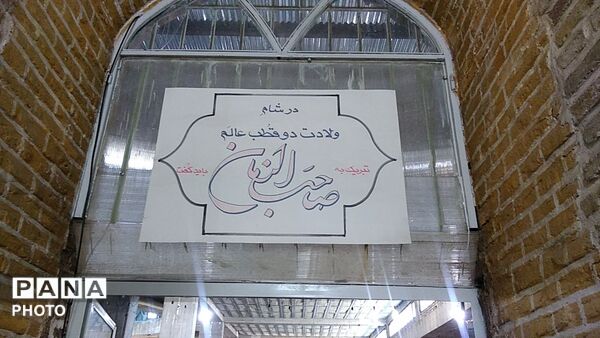 در شام
ولادت دو قطب عالم
تبریک به
صاحب الزمان
باید گفت
PANA
PHOTO